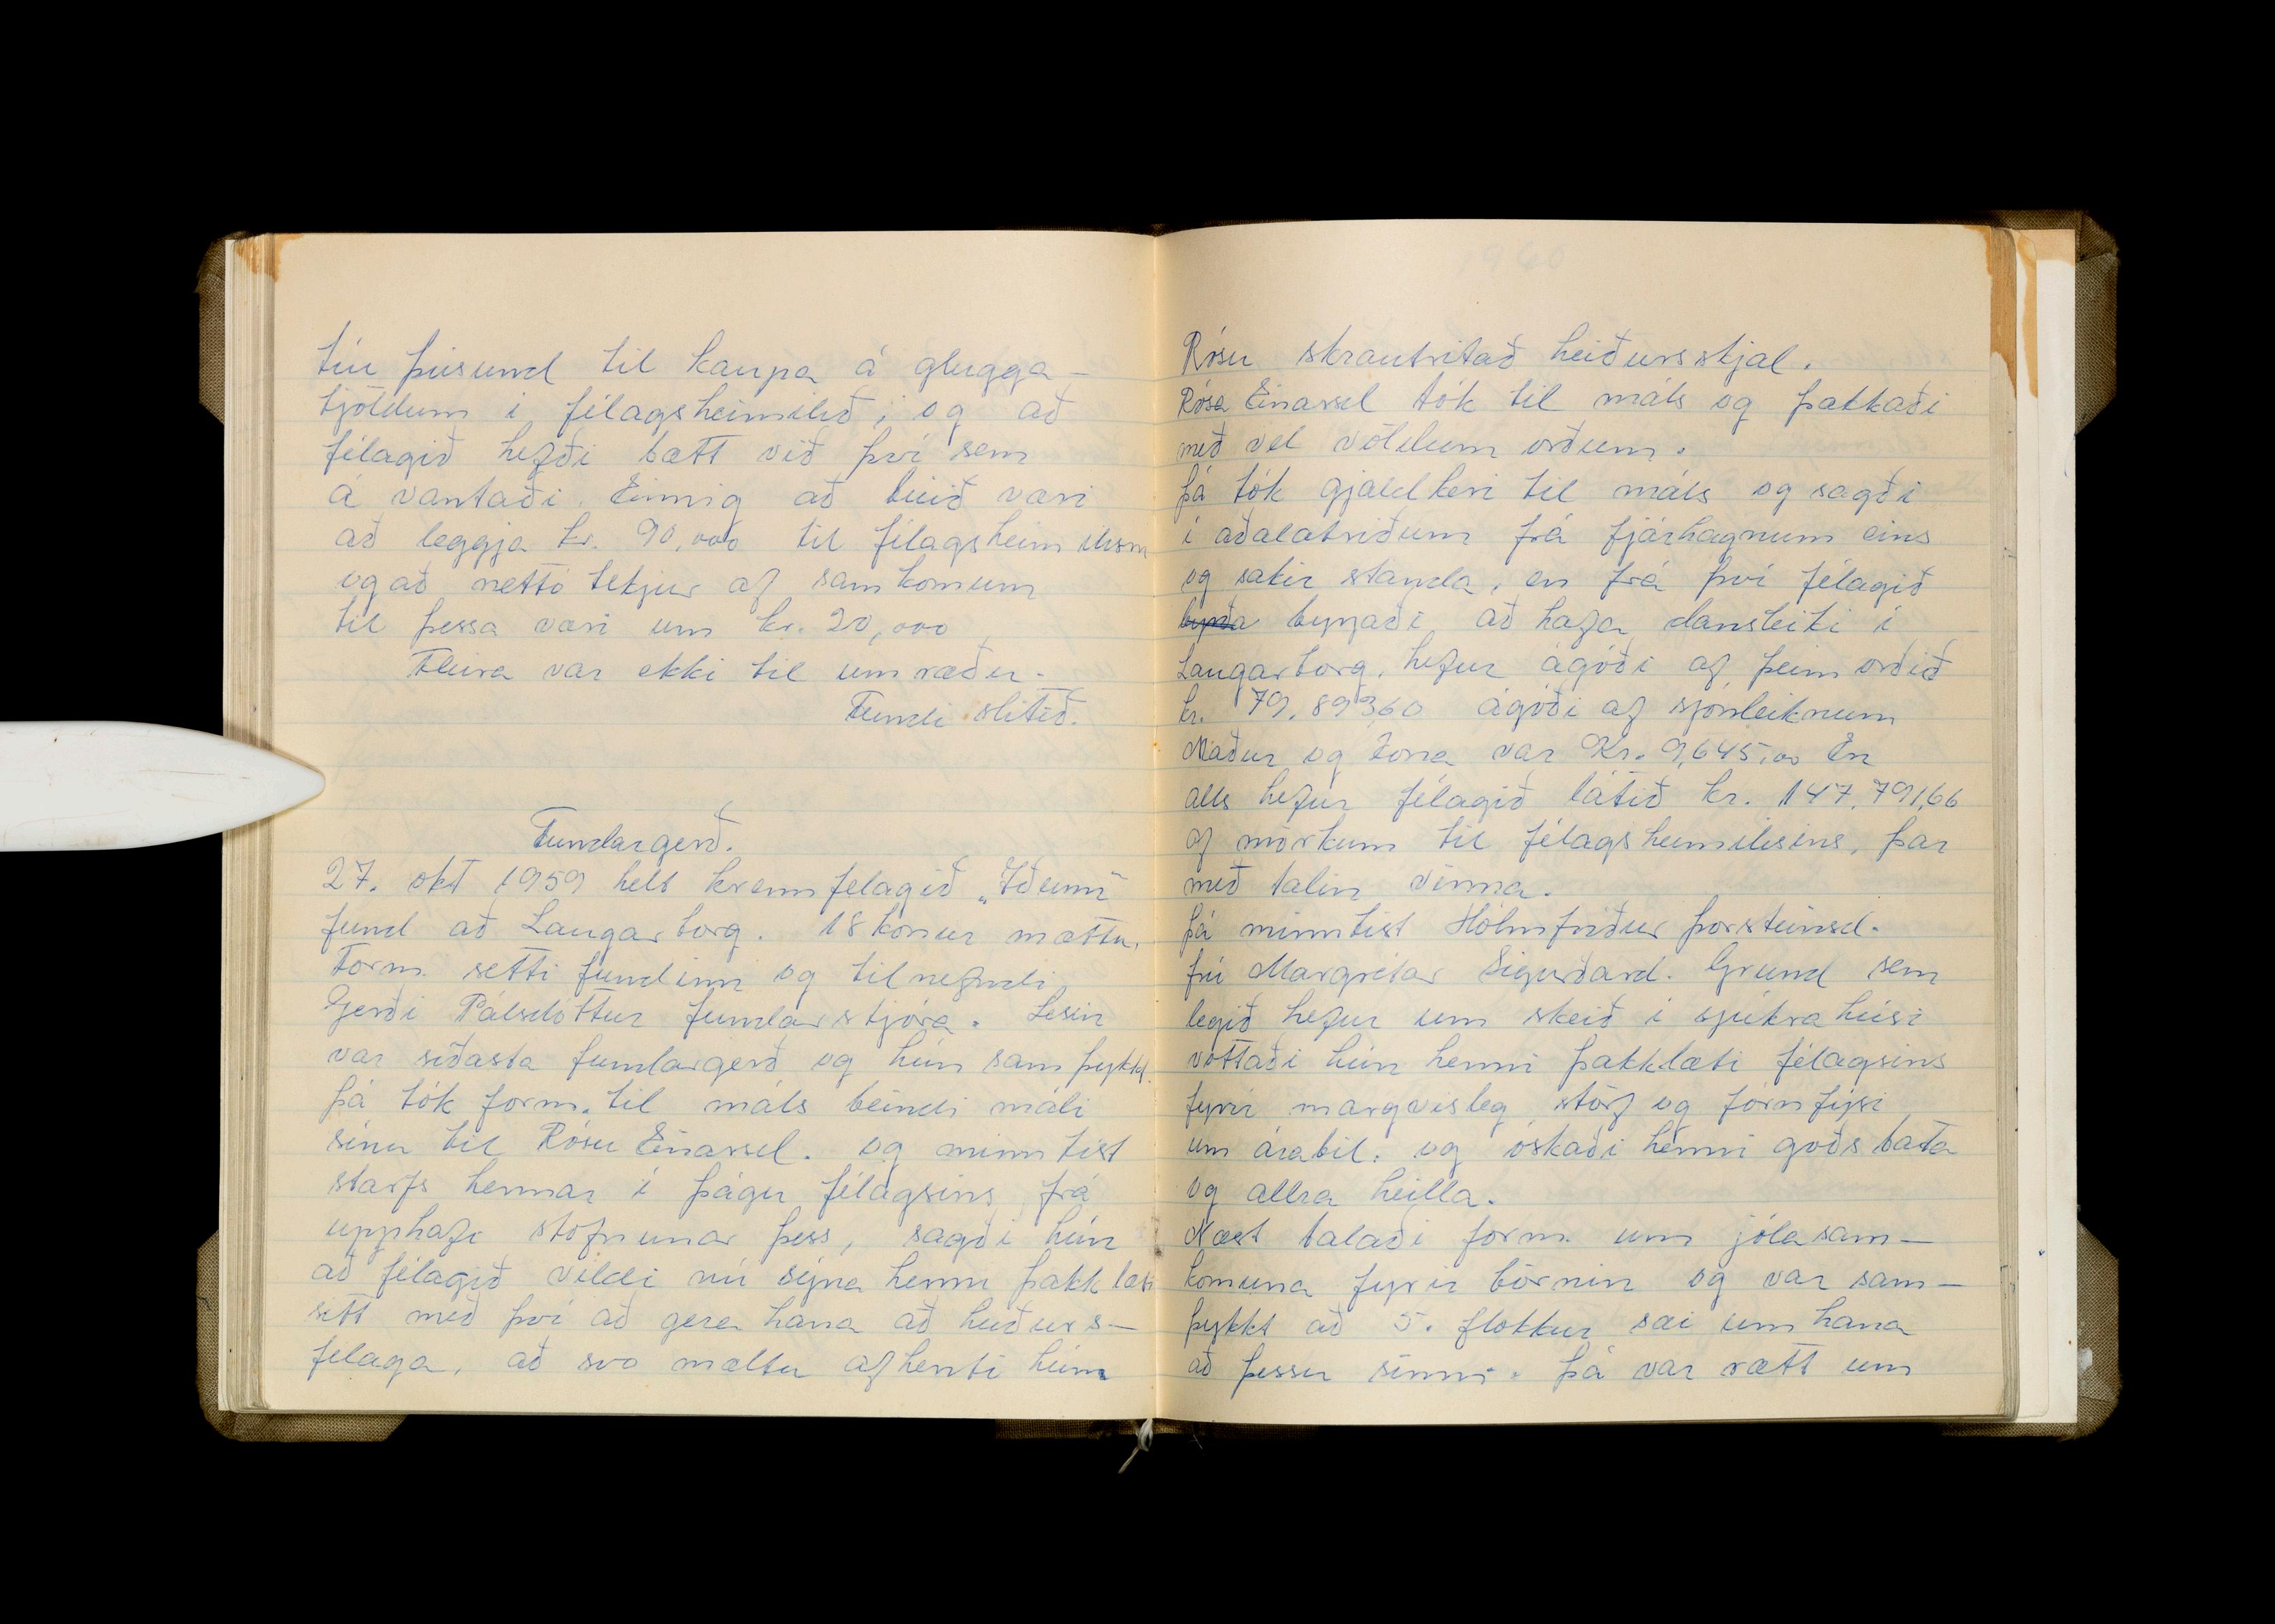 tíu þúsund til kaupa á glugga-
tjöldum í félagsheimilið, og að
félagið hefði bætt við því sem
á vantaði. Einnig að búið væri
að leggja kr. 90,000 til félagsheimilism
og að nettó tekjur af samkomum
til þessa væri um kr. 20,000
Fleira var ekki til umræðu.
Fundi slitið.
Fundargerð.
27. okt 1959 helt kvennfelagið „Iðunn"
fund að Laugarborg. 18 konur mættu.
Form. setti fundinn og tilnefndi
Gerði Pálsdóttur fundarstjóra. Lesin
var síðasta fundargerð og hún samþykkt.
Þá tók form. til máls beindi máli
sínu til Rósu Einarsd. og minntist
starfs hennar í þágu félagsins frá
upphafi stofnunar þess, sagði hún
að félagið vildi nú sýna henni þakklæti
sitt með því að gera hana að heiðurs-
felaga, að svo mæltu afhenti hún
1960
Rósu skrautritað heiðursskjal.
Rósa Einarsd tók til máls og þakkaði
með vel völdum orðum.
Þá tók gjaldkeri til máls og sagði
í aðalatriðum frá fjárhagnum eins
og sakir standa, en frá því félagið
byrjaði að hafa dansleiki í
Laugarborg, hefur ágóði af þeim orðið
kr. 79.893,60 ágóði af sjónleiknum
Maður og kona var Kr. 9,645,00 En
alls hefur félagið látið kr. 147.791,66
af mörkum til félagsheimilisins, þar
með talin vinna.
Þá minntist Hólmfríður Þorsteinsd.
frú Margrétar Sigurðard. Grund sem
legið hefur um skeið í sjúkrahúsi
vottaði hún henni þakklæti félagsins
fyrir margvísleg störf og fórnfýsi
um árabil. og óskaði henni góðs bata
og allra heilla.
Næst talaði form. um jólasam-
komuna fyrir börnin og var sam-
þykkt að 5. flokkur sæi um hana
að þessu sinni. Þá var rætt um